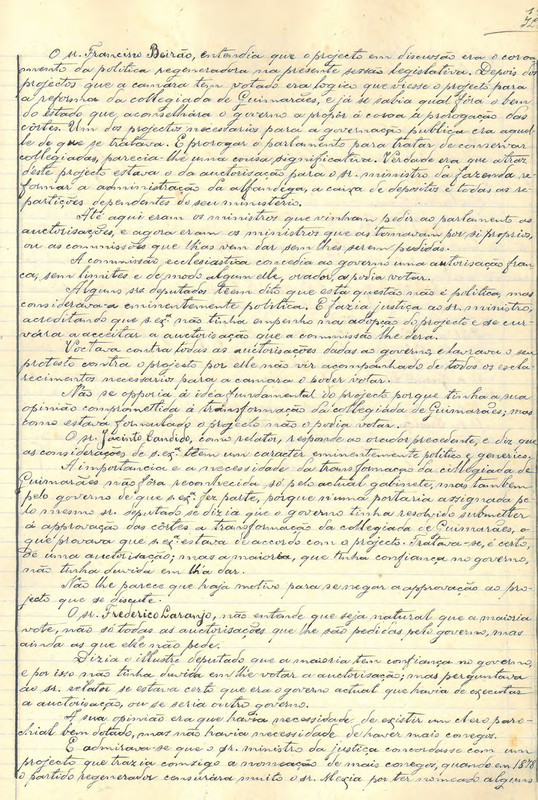 O sr. Francisco Beirão, entendia que o projecto em discussão era o coroa
mento da politica regeneradora na presente sessão legislativa. Depois dos
projectos que a camara tem votado era logico que viesse o projecto para
a reforma da collegiada de Guimarães, e já se sabia qual fôra o bem
do estado que aconselhára o governo a propôr á corôa a prorogação das
côrtes. Um dos projectos necessarios para a governação publica era aquel-
le de que se tratava. E prorogar o parlamento para tratar de conservar
collegiadas, parecia-lhe uma cousa significativa. Verdade era que atraz
d'este projecto estava o da auctorisação para o sr. ministro da fazenda re-
formar a administração da alfandega, a caixa de depositos e todas as re-
partições dependentes do seu ministerio.
Até aqui eram os ministros que vinham pedir ao parlamento as
auctorisações, e agora eram os ministros que as tomavam por si proprio,
ou as commissões que lhas vem dar sem lhes serem pedidas.
A commissão ecclesiastica concedia ao governo uma autorisação fran-
ca, sem limites e de modo algum elle, orador, a podia votar.
Alguns srs deputados têem dito que esta questão não é politica, mas
considerava-a eminentemente politica. E fazia justiça ao sr. ministro,
acreditando que s. ex.ª não tinha empenho na adopção do projecto e se cur-
vára a acceitar a auctorisação que a commissão lhe dera.
Voctava contra todas as auctorisações dadas ao governo, e lavrava o seu
protesto contra o projecto por elle não vir acompanhado de todos os escla-
recimentos necessarios para a camara o poder votar.
Não se opporia á idéa fundamental do projecto porque tinha a sua
opinião compromettida á transformação da collegiada de Guimarães; mas
como estava formulado o projecto não o podia votar.
O sr. Jacinto Candido, como relator, responde ao orador precedente, e diz que
as considerações de s. ex.ª têem um caracter eminentemente politico e generico.
A importancia e a necessidade da transformação da collegiada de
Guimarães não fôra reconhecida só pelo actual gabinete, mas tambem
pelo governo de que s. ex.ª fez parte, porque n'uma portaria assignada pe-
lo mesmo sr. deputado se dizia que o governo tinha resolvido submetter
á approvação das côrtes a transformação da collegiada de Guimarães, o
que provava que s. ex.ª estava de accordo com o projecto. Tratava-se, é certo,
de uma auctorisação; mas a maioria, que tinha confiança no governo,
não tinha duvida em lh'a dar.
Não lhe parece que haja motivo para se negar a approvação ao pro-
jecto que se discute.
O sr. Frederico Laranjo, não entende que seja natural que a maioria
vote, não só todas as auctorisações que lhe são pedidas pelo governo, mas
ainda as que elle não pede.
Dizia o illustre deputado que a maioria tem confiança no governo,
e por isso não tinha duvida em lhe votar a auctorisação; mas perguntava
ao sr. relator se estava certo que era o governo actual que havia de executar
a auctorisação, ou se seria outro governo.
A sua opinião era que havia necessidade de existir um clero paro-
chial bem dotado, mas não havia necessidade de haver mais conegos.
E admirava-se que o sr. ministro da justiça concordasse com um
projecto que trazia comsigo a nomeação de mais conegos, quando em 1878
o partido regenerador censurára muito o sr. Mexia por ter nomeado alguns